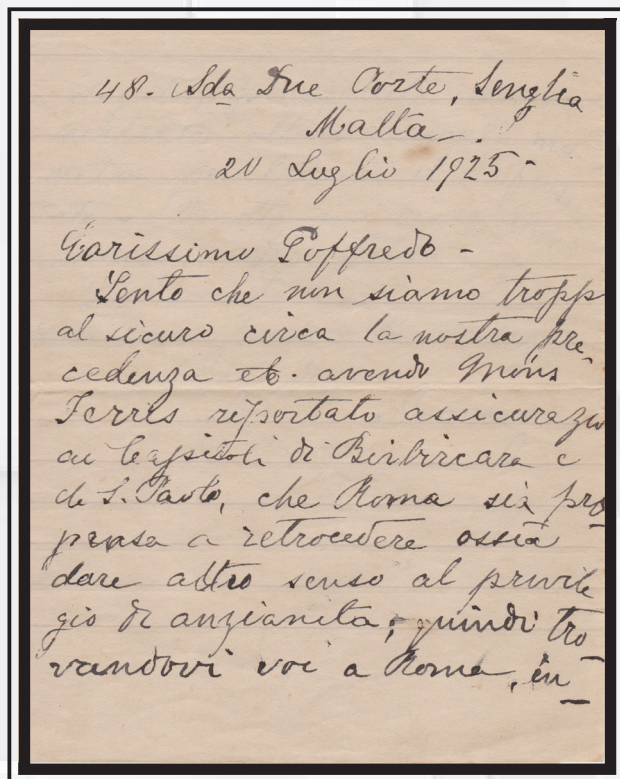 48. Sda Due Corte, Senglea
Malta.
20 Luglio 1925
Carissimo Goffredo -
Sento che non siamo tropp
al sicuro circa la nostra pre-
cedenza etc. avendo Mons
Ferris riportato assicurazio
ai Capitoli di Birkircara e
di S. Paolo, che Roma sia pro-
pensa a retrocedere ossia
dare altro senso al privile
gio di anzianita; quindi tro-
vandovi voi a Roma, in-